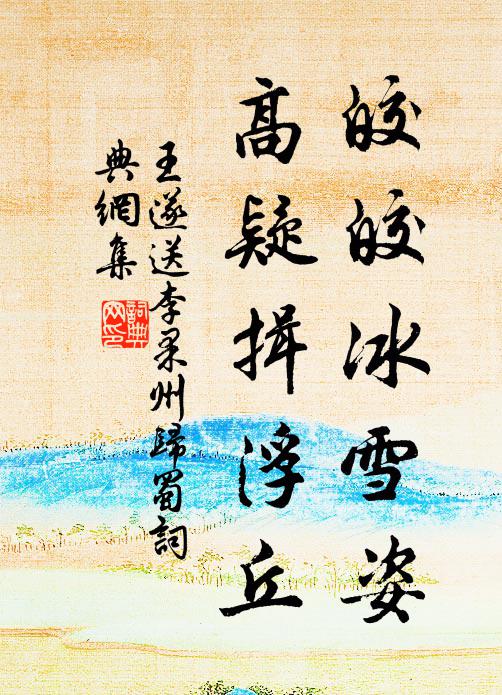 皎皎冰雪姿
高疑揖浮丘
王遂送李果州歸蜀詞
典網集
詞典
网印